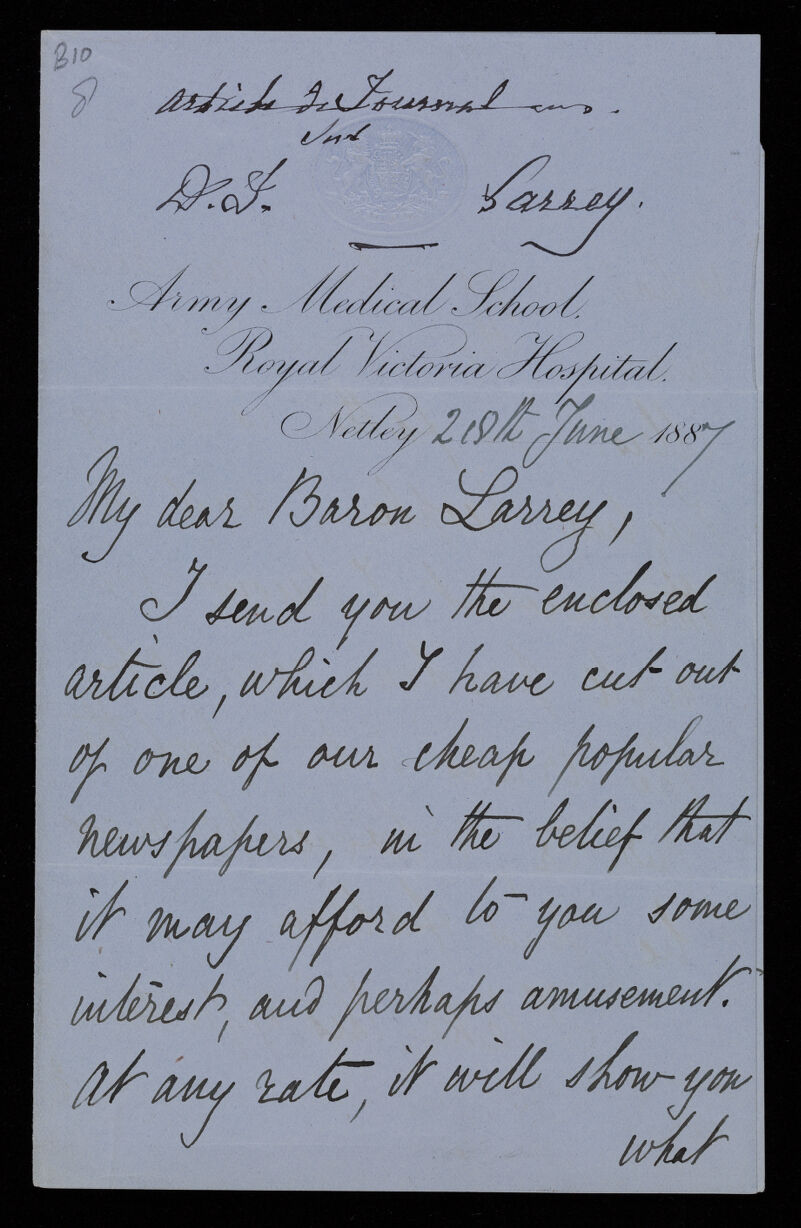 B10
8
article de Journal
sur
D. J. Larrey.
Army Medical School,
Royal Victoria Hospital,
Netley 28th June 1887
My dear Baron Larrey,
I send you the enclosed
article, which I have cut out
of one of our cheap popular
newspapers, in the belief that
it may afford to you some
interest, and perhaps amusement.
At any rate, it will show you
what